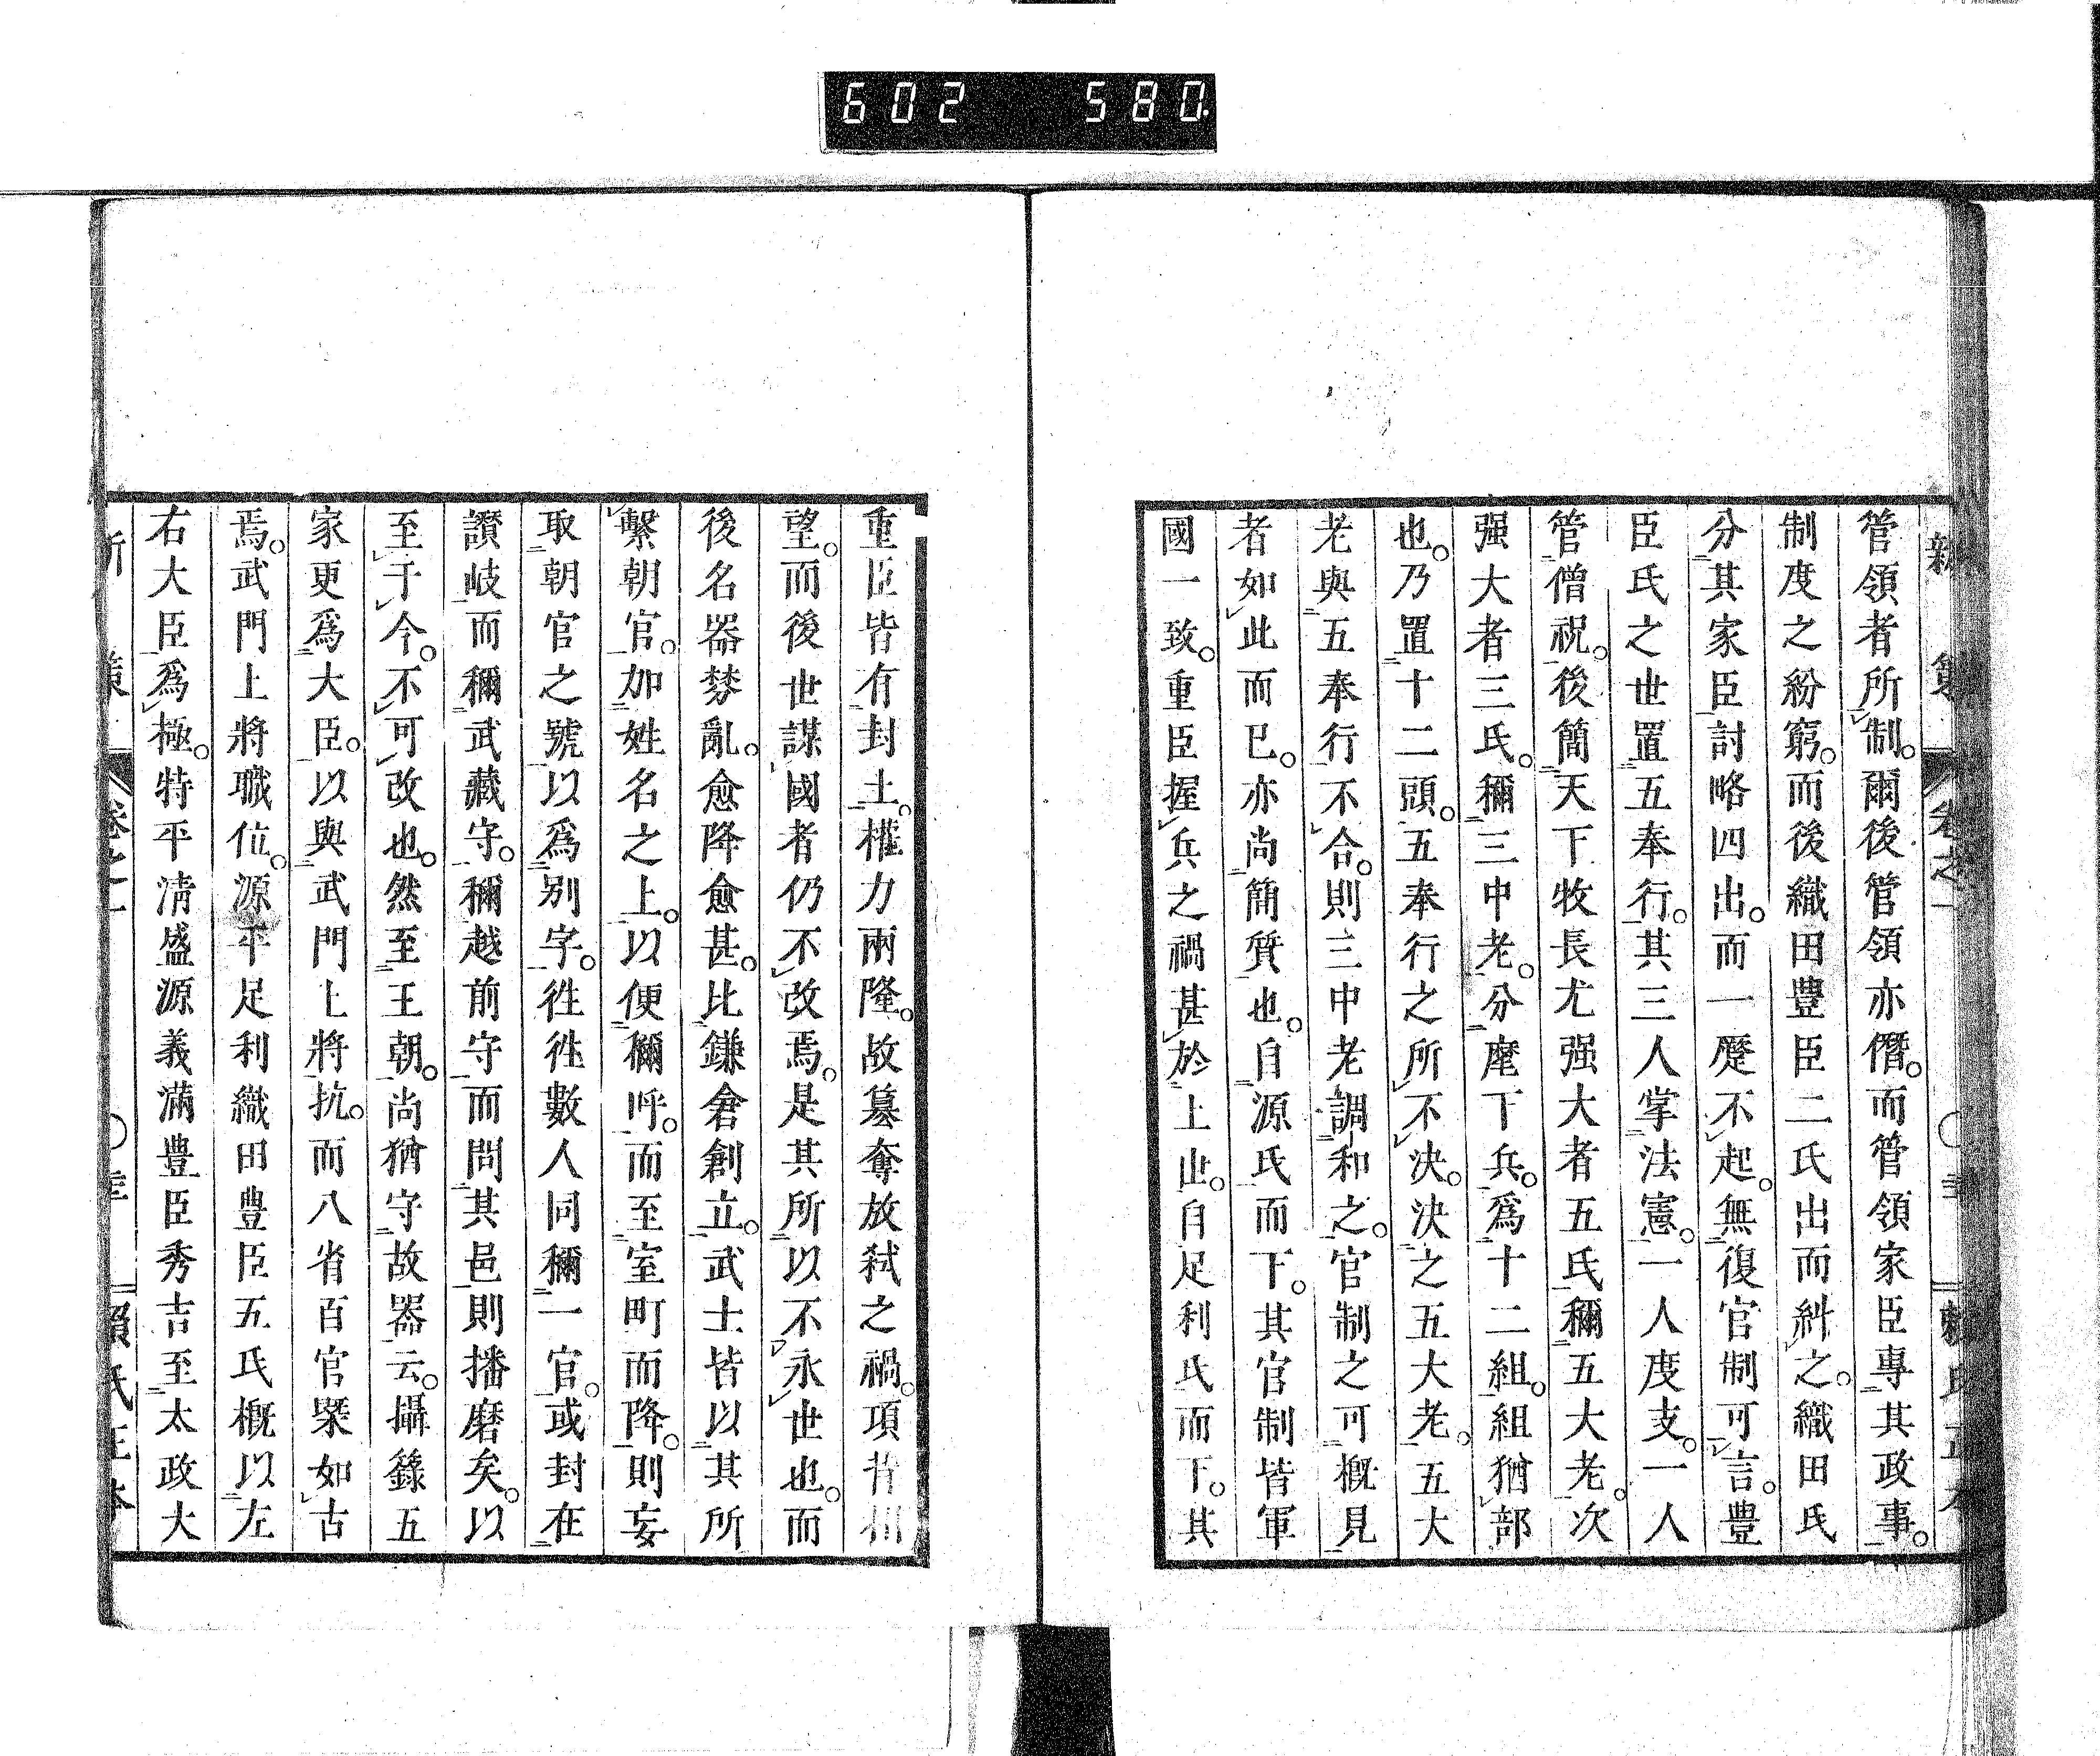 602 580.
新策 卷之一 賴氏正本
管領者所制。爾後管領亦僭。而管領家臣專其政事。
制度之紛窮。而後織田豊臣二氏出而糾之。織田氏
分其家臣討略四出。而一蹙不起。無復官制可言。豊
臣氏之世置五奉行。其三人掌法憲。一人度支。一人
管僧祝。後簡天下牧長尤强大者五氏稱五大老。次
强大者三氏。稱三中老。分麾下兵。爲十二組。組猶部
也。乃置十二頭。五奉行之所不決。決之五大老。五大
老與五奉行不合。則三中老調和之。官制之可概見
者如此而已。亦尚簡質也。自源氏而下。其官制皆軍
國一致。重臣握兵之禍甚於上世。自足利氏而下。其
重臣皆有封土。權力兩隆。故篡奪放弑之禍。項背相
望。而後世謀國者仍不改焉。是其所以不永世也。而
後名器棼亂。愈降愈甚。比鎌倉創立。武士皆以其所
繫朝官。加姓名之上。以便稱呼。而至室町而降。則妄
取朝官之號以爲別字。徃徃數人同稱一官。或封在
讃岐而稱武藏守。稱越前守而問其邑則播磨矣。以
至于今。不可改也。然至王朝。尚猶守故器云。攝籙五
家更爲大臣。以與武門上將抗。而八省百官槩如古
焉。武門上將職位。源平足利織田豊臣五氏概以左
右大臣爲極。特平淸盛源義滿豊臣秀吉至太政大